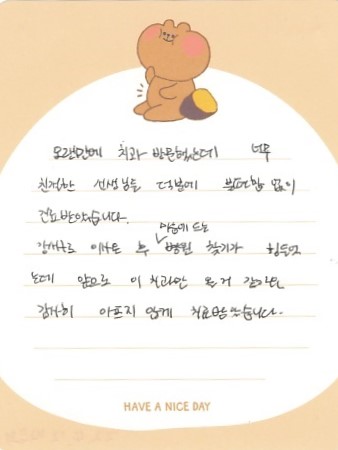 오랜만에 치과 방문했는데 너무
친절한 선생님들 덕분에 불편함 없이
진료받았습니다.
마음에 드는
강서구로 이사온 후 병원 찾기가 힘들었
는데 앞으로 이 치과만 올 거
감사히 아프지 않게 치료받았습니다.
HAVE A NICE DAY